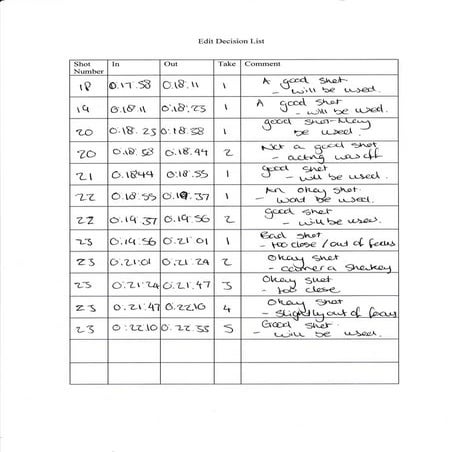 Edit Decision List
Shot Number In Out Take Comment
18 0:17:58 0:18:11 1 A good shot - will be used.
19 0:18:11 0:18:23 1 A good shot - will be used.
20 0:18:23 0:18:38 1 good shot - May be used.
20 0:18:38 0:18:44 2 Not a good shot - acting was off
21 0:18:44 0:18:55 1 good shot - will be used.
22 0:18:55 0:19:37 1 An okay shot - wont be used.
22 0:19:37 0:19:56 2 good shot - will be used.
23 0:19:56 0:21:01 1 Bad shot - too close / out of focus
23 0:21:01 0:21:24 2 Okay shot - camera shakey
23 0:21:24 0:21:47 3 Okay shot - too close
23 0:21:47 0:22:10 4 Okay shot - slightly out of focus
23 0:22:10 0:22:35 5 Good shot - will be used.